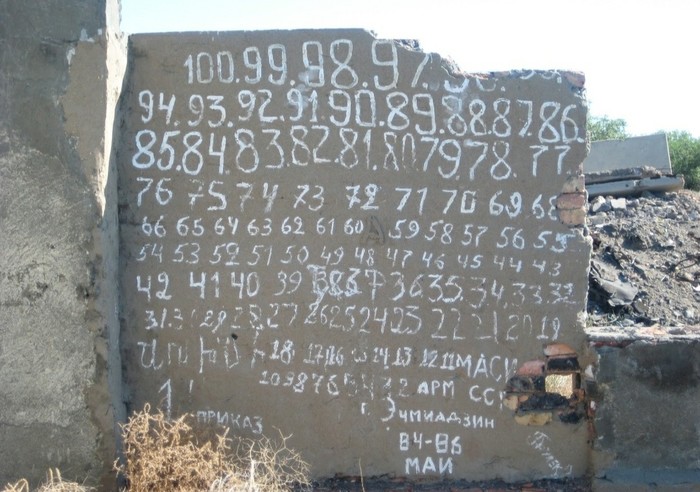 100.99.98.97.
94.93.92.91.90.89.88.87.86.
85.84.83.82.81.80 79.78. 77.
76 75 74 73 72 71 70 69.68
66 65 64 63 62 61 60 59 58 57 56 55
54 53 52 51 50 49 48 47 46 45 44 43
42 41 40 39 38 37 36 35.34.33.32
31.30 29 28 27 26 25 24 23 22 21 20 19
18 17 16 14 13 12 11 МАСИ
10 9 8 7 6 5 4 3 2 АРМ ССР
1 ПРИКАЗ г. Эчмиадзин
84-86
МАЙ